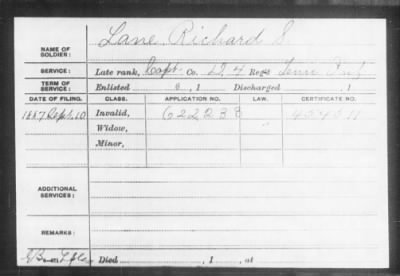 NAME OF SOLDIER: Lane, Richard S
SERVICE: Late rank, Capt Co. D, 4 Reg't Tenn Inf
TERM OF SERVICE: Enlisted , 1 Discharged , 1
DATE OF FILING. CLASS. APPLICATION NO. LAW. CERTIFICATE NO.
1887 Sept. 10 Invalid, 622238
Widow,
Minor,
ADDITIONAL SERVICES:
REMARKS:
Died , 1 , at